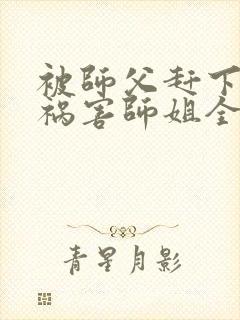 被師父赶下
祸害師姐全
青星月影